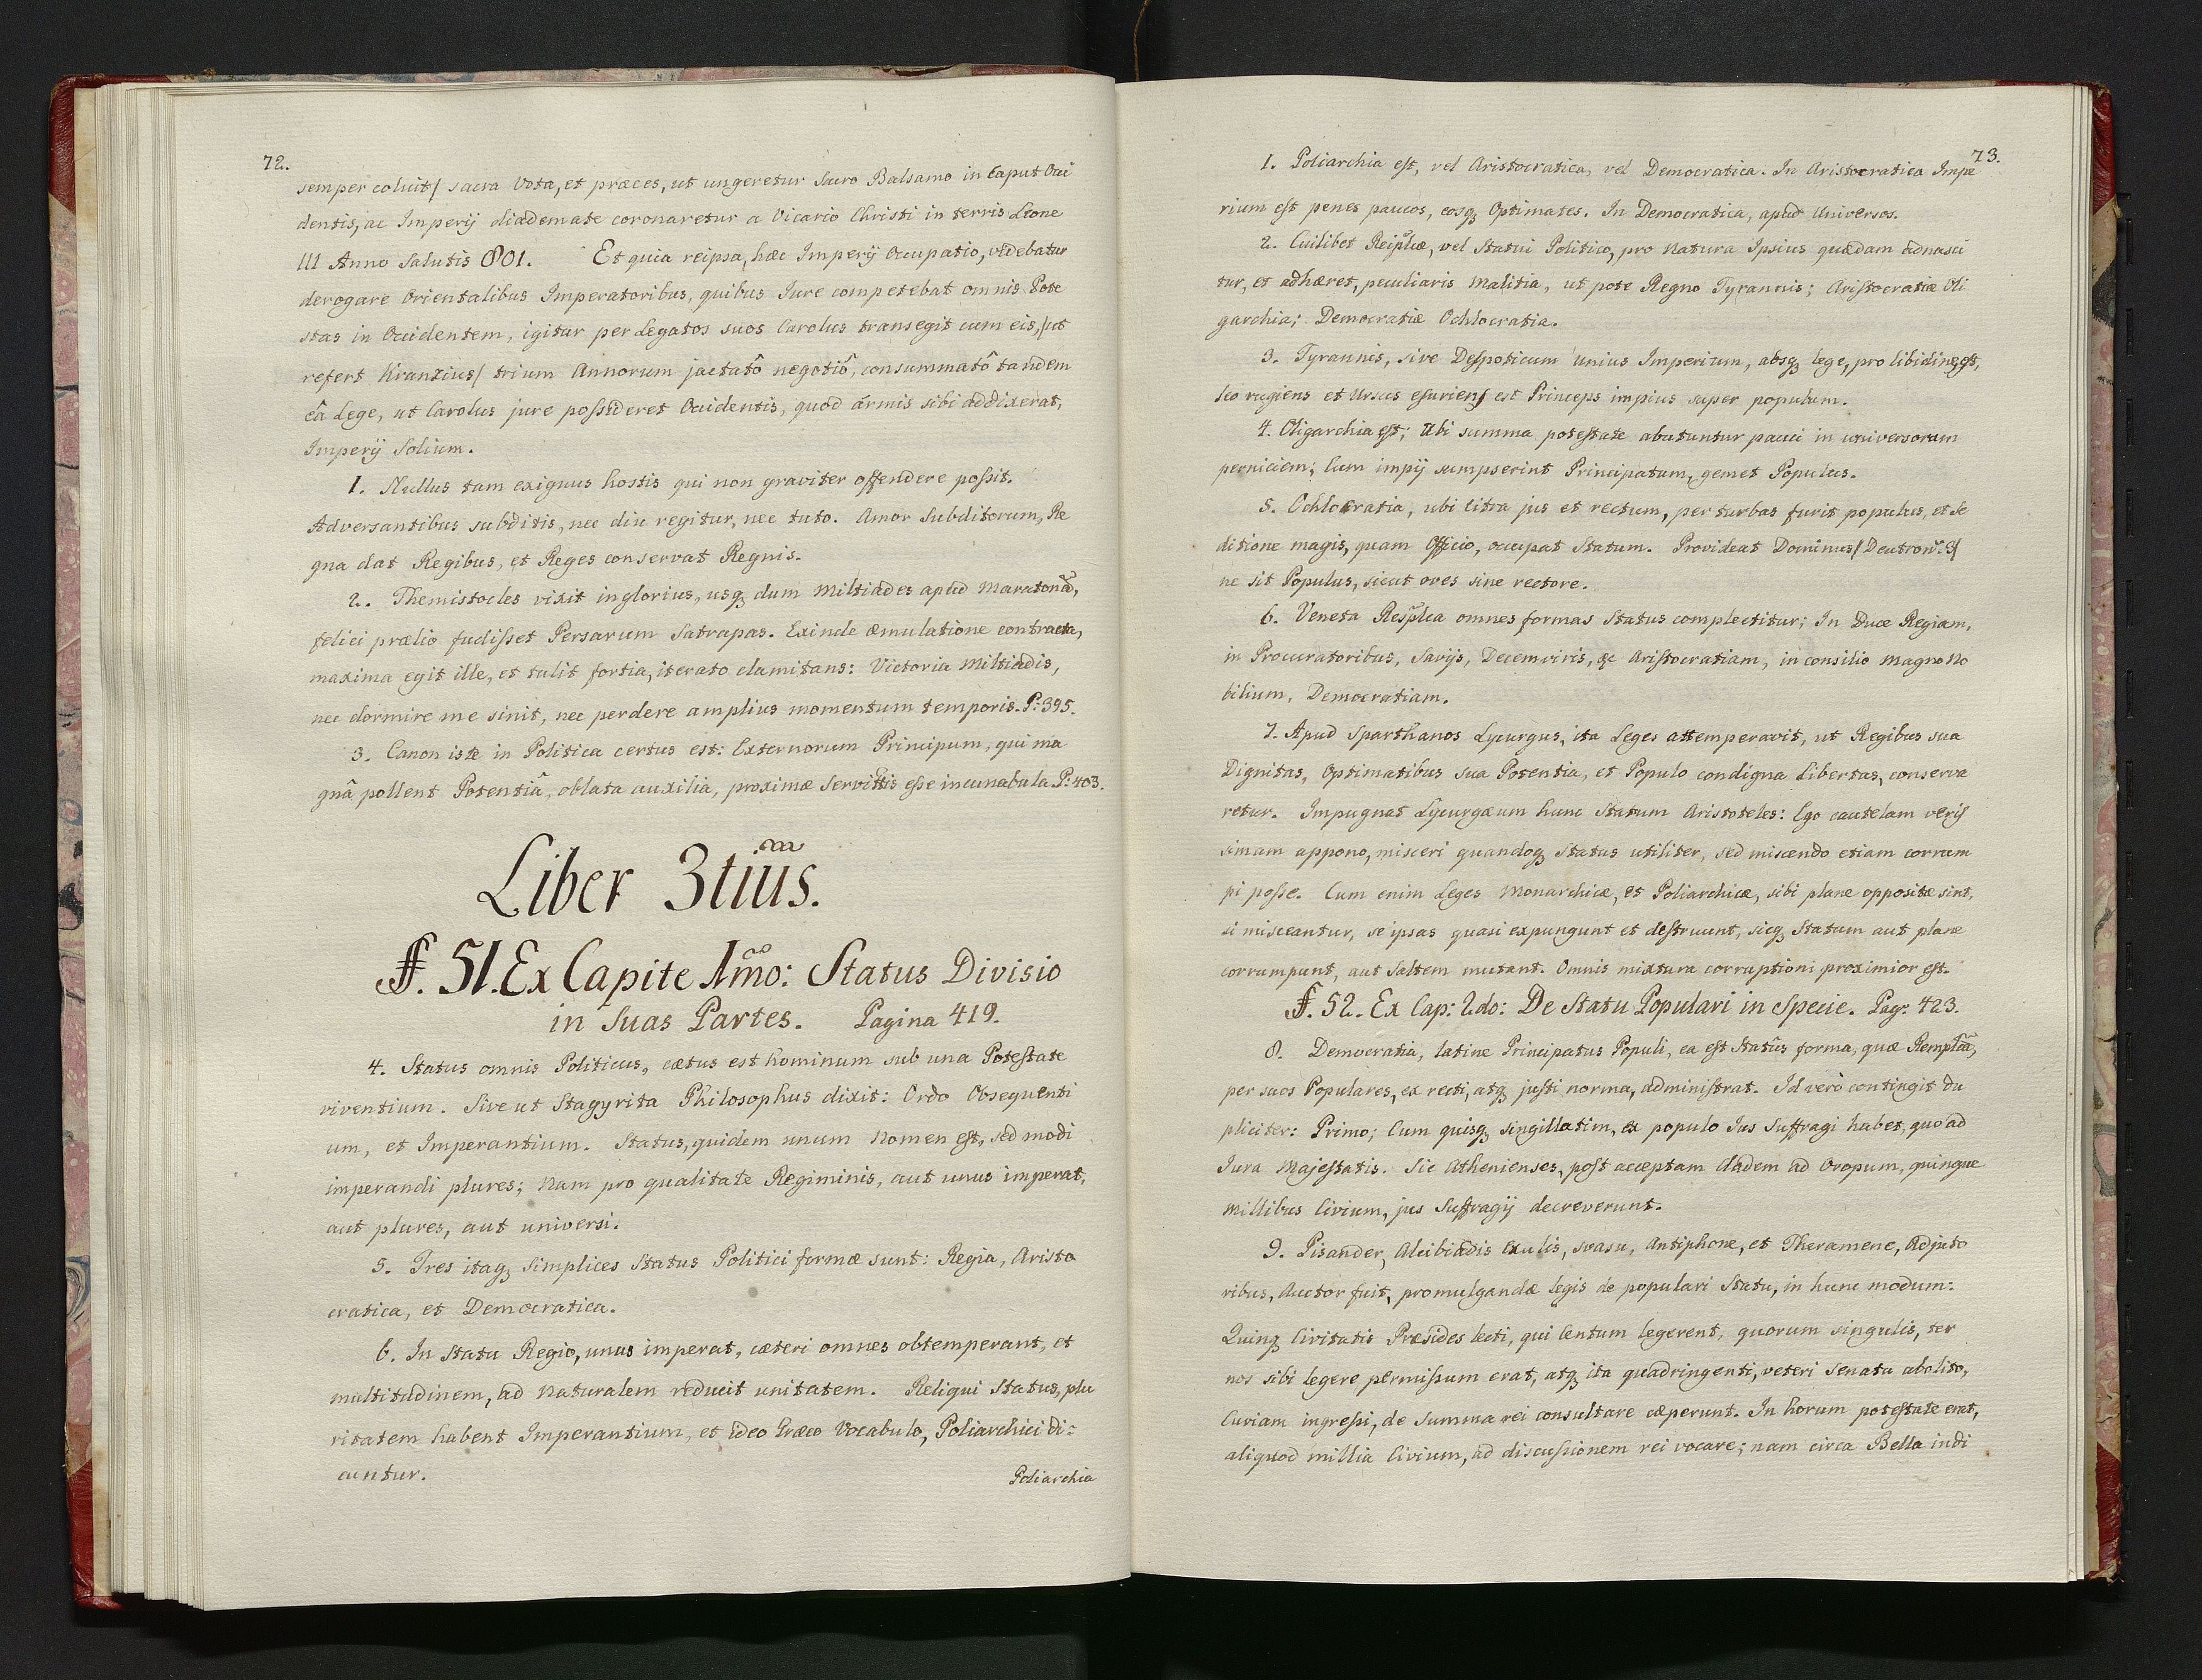 72.
semper coluit/ sacra Vota, et præces, ut ungeretur Sacro Balsamo in Caput Occi
dentis, ac Imperÿ diademate coronaretur a Vicario Christi in terris Leone
III Anno Salutis 801. Et quia reipsa, hæc Imperÿ Occupatio, videbatur
derogare Orientalibus Imperatoribus, quibus Jure competebat omnis Pote
stas in Occidentem, igitur per Legatos suos Carolus transegit cum eis, /ut
refert Kranzius/ trium Annorum jactatô negotiô, consummatô tandem
eâ Lege, ut Carolus jure possideret Occidentis, quod armis sibi addixerat,
Imperÿ Solium.
1. Nullus tam exiguus hostis qui non graviter offendere possit.
Adversantibus subditis, nec diu regitur, nec tuto. Amor Subditorum, Re
gna dat Regibus, et Reges conservat Regnis.
2. Themistocles vixit inglorius, usq; dum Miltiades apud Maratona,
felici prælio fudisset Persarum Satrapas. Exinde æmulatione contracta,
maxima egit ille, et tulit fortia, iterato clamitans: Victoria Miltiadis,
nec dormire me sinit, nec perdere amplius momentum temporis. P: 395.
3. Canon iste in Politica certus est: Externorum Principum, qui ma
gnâ pollent Potentiâ, oblata auxilia, proximæ Servittis esse incunabula. P: 403.
Liber 3tius.
§. 51. Ex Capite 1mo: Status Divisio
in Suas Partes. Pagina 419.
4. Status omnis Politicus, cætus est hominum sub una Potestate
viventium. Sive ut Stagyrita Philosophus dixit: Ordo Obsequenti
um, et Imperantium. Status, quidem unum Nomen est, sed modi
imperandi plures; Nam pro qualitate Regiminis, aut unus imperat,
aut plures, aut universi.
5. Tres itaq; Simplices Status Politici formæ sunt: Regia, Aristo
cratica, et Democratica.
6. In Statu Regio, unus imperat, cæteri omnes obtemperant, et
multitudinem, ad Naturalem reducit unitatem. Reliqui Status, plu
ritatem habent Imperantium, et ideo Græco Vocabulo, Poliarchici di=
cuntur.
Poliarchia
73.
1. Poliarchia est, vel Aristocratica, vel Democratica. In Aristocratica Impe
rium est penes paucos, eosq; Optimates. In Democratica, apud Universos.
2. Cuilibet Reiplcæ, vel Statui Politico, pro Natura Ipsius quædam adnasci
tur, et adhæret, peculiaris Malitia, ut pote Regno Tyrannis; Aristocratiæ Oli
garchia; Democratiæ Ochlocratia.
3. Tyrannis, sive Despoticum Unius Imperium, absq; lege, pro libidine est,
Leo rugiens et Ursus esuriens est Princeps impius super populum.
4. Oligarchia est; Ubi summa potestate abutuntur pauci in universorum
perniciem; Cum impÿ sumpserint Principatum, gemet Populus.
5. Ochlocratia, ubi citra jus et rectum, per turbas furit populus, et Se
ditione magis, quam Officio, occupat Statum. Provideat Dominus/ Deutron: 3/
ne sit Populus, sicut oves sine rectore.
6. Veneta Resplca omnes formas Status complectitur; In Duce Regiam,
in Procuratoribus, Savÿs, Decemviris, &c Aristocratiam, in consilio Magno No
bilium, Democratiam.
7. Apud Sparthanos Lycurgus, ita Leges attemperavit, ut Regibus sua
Dignitas, Optimatibus sua Potentia, et Populo condigna Libertas, conserva
retur. Impugnat Lycurgæum hunc Statum Aristoteles: Ego cautelam veris
simam appono, misceri quandoq; Status utiliter, sed miscendo etiam corrum
pi posse. Cum enim Leges Monarchicæ, et Poliarchicæ, sibi plane oppositæ sint,
si misceantur, se ipsas quasi expungunt et destruunt, sicq; Statum aut plane
corrumpunt, aut Saltem mutant. Omnis mixtura corruptioni proximior est.
§. 52. Ex Cap: 2do: De Statu Populari in Specie. Pag: 423.
8. Democratia, latine Principatus Populi, ea est Statûs forma, quæ Remplcã,
per suos Populares, ex recti, atq; justi norma, administrat. Id verò contingit du
pliciter: Primo; Cum quisq; singillatim, ex populo Jus Suffragi habet, quo ad
Jura Majestatis. Sic Athenienses, post acceptam cladem ad Oropum, quinque
millibus Civium, jus Suffragÿ decreverunt.
9. Pisander, Alcibiadis exulis, svasu, Antiphone, et Theramene, Adjuto
ribus, Auctor fuit, promulgandæ legis de populari Statu, in hunc modum:
Quinq; Civitatis Præsides lecti, qui Centum legerent, quorum singulis, ter
nos sibi legere permissum erat, atq; ita quadringenti, veteri Senatu abolito,
Curiam ingressi, de Summa rei consultare cæperunt. In horum potestate erat,
aliquod millia Civium, ad discussionem rei vocare; nam circa Bella indi